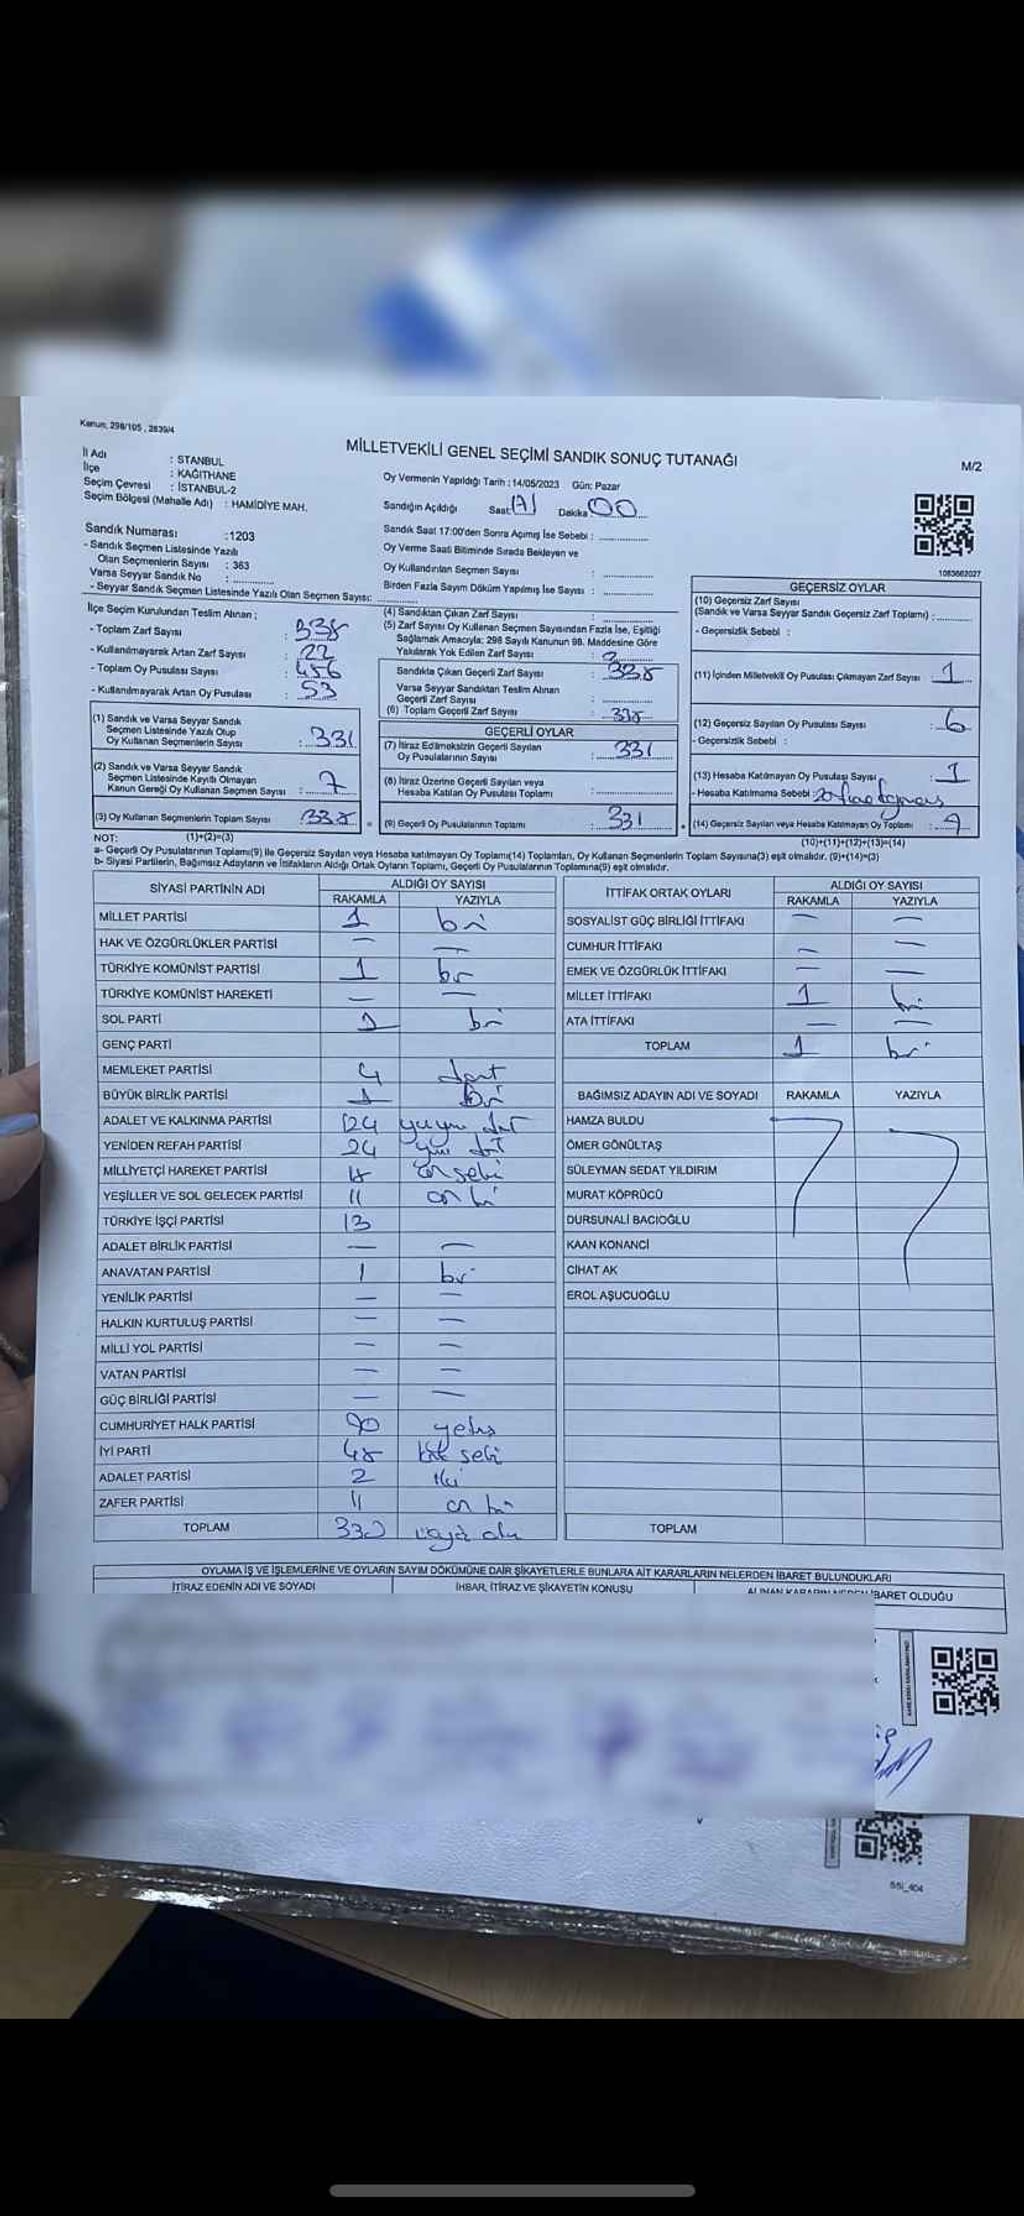 Kanun, 298/105, 2839/4
MİLLETVEKİLİ GENEL SEÇİMİ SANDIK SONUÇ TUTANAĞI
M/2
İl Adı : STANBUL
İlçe : KAĞITHANE
Seçim Çevresi : İSTANBUL-2
Seçim Bölgesi (Mahalle Adı) : HAMİDİYE MAH.
Sandık Numarası :1203
- Sandık Seçmen Listesinde Yazılı
Olan Seçmenlerin Sayısı : 363
Varsa Seyyar Sandık No :
- Seyyar Sandık Seçmen Listesinde Yazılı Olan Seçmen Sayısı:
Oy Vermenin Yapıldığı Tarih : 14/05/2023 Gün: Pazar
Sandığın Açıldığı Saat: 17 Dakika 00
Sandık Saat 17:00'den Sonra Açımış İse Sebebi :
Oy Verme Saati Bitiminde Sırada Bekleyen ve
Oy Kullandırılan Seçmen Sayısı :
Birden Fazla Sayım Döküm Yapılmış İse Sayısı :
1083662027
İlçe Seçim Kurulundan Teslim Alınan ;
- Toplam Zarf Sayısı :
- Kullanılmayarak Artan Zarf Sayısı : 22
- Toplam Oy Pusulası Sayısı : 456
- Kullanılmayarak Artan Oy Pusulası : 53
(1) Sandık ve Varsa Seyyar Sandık
Seçmen Listesinde Yazılı Olup
Oy Kullanan Seçmenlerin Sayısı : 331
(2) Sandık ve Varsa Seyyar Sandık
Seçmen Listesinde Kayıtlı Olmayan
Kanun Gereği Oy Kullanan Seçmen Sayısı : 7
(3) Oy Kullanan Seçmenlerin Toplam Sayısı : 338
(4) Sandıktan Çıkan Zarf Sayısı :
(5) Zarf Sayısı Oy Kullanan Seçmen Sayısından Fazla İse, Eşitliği
Sağlamak Amacıyla; 298 Sayılı Kanunun 98. Maddesine Göre
Yakılarak Yok Edilen Zarf Sayısı :
Sandıkta Çıkan Geçerli Zarf Sayısı : 338
Varsa Seyyar Sandıktan Teslim Alınan
Geçerli Zarf Sayısı :
(6) Toplam Geçerli Zarf Sayısı : 338
GEÇERLİ OYLAR
(7) İtiraz Edilmeksizin Geçerli Sayılan
Oy Pusulalarının Sayısı : 331
(8) İtiraz Üzerine Geçerli Sayılan veya
Hesaba Katılan Oy Pusulası Toplamı :
(9) Geçerli Oy Pusulalarının Toplamı : 331
GEÇERSİZ OYLAR
(10) Geçersiz Zarf Sayısı
(Sandık ve Varsa Seyyar Sandık Geçersiz Zarf Toplamı) :
- Geçersizlik Sebebi :
(11) İçinden Milletvekili Oy Pusulası Çıkmayan Zarf Sayısı : 1
(12) Geçersiz Sayılan Oy Pusulası Sayısı : 6
- Geçersizlik Sebebi :
(13) Hesaba Katılmayan Oy Pusulası Sayısı : 1
- Hesaba Katılmama Sebebi :
(14) Geçersiz Sayılan veya Hesaba Katılmayan Oy Toplamı :
NOT: (1)+(2)=(3)
(10)+(11)+(12)+(13)=(14)
a- Geçerli Oy Pusulalarının Toplamı(9) ile Geçersiz Sayılan veya Hesaba katılmayan Oy Toplamı(14) Toplamları, Oy Kullanan Seçmenlerin Toplam Sayısına(3) eşit olmalıdır. (9)+(14)=(3)
b- Siyasi Partilerin, Bağımsız Adayların ve İttifakların Aldığı Ortak Oyların Toplamı, Geçerli Oy Pusulalarının Toplamına(9) eşit olmalıdır.
SİYASİ PARTİNİN ADI
ALDIĞI OY SAYISI
RAKAMLA YAZIYLA
MİLLET PARTİSİ 1 bir
HAK VE ÖZGÜRLÜKLER PARTİSİ — —
TÜRKİYE KOMÜNİST PARTİSİ 1 bir
TÜRKİYE KOMÜNİST HAREKETİ — —
SOL PARTİ 1 bir
GENÇ PARTİ
MEMLEKET PARTİSİ 4 dört
BÜYÜK BİRLİK PARTİSİ 1 bir
ADALET VE KALKINMA PARTİSİ 124
YENİDEN REFAH PARTİSİ 24
MİLLİYETÇİ HAREKET PARTİSİ 18
YEŞİLLER VE SOL GELECEK PARTİSİ 11 on bir
TÜRKİYE İŞÇİ PARTİSİ 13
ADALET BİRLİK PARTİSİ — —
ANAVATAN PARTİSİ 1 bir
YENİLİK PARTİSİ — —
HALKIN KURTULUŞ PARTİSİ — —
MİLLİ YOL PARTİSİ — —
VATAN PARTİSİ — —
GÜÇ BİRLİĞİ PARTİSİ — —
CUMHURİYET HALK PARTİSİ
İYİ PARTİ 48
ADALET PARTİSİ 2 iki
ZAFER PARTİSİ 11 on bir
TOPLAM 330
İTTİFAK ORTAK OYLARI
ALDIĞI OY SAYISI
RAKAMLA YAZIYLA
SOSYALİST GÜÇ BİRLİĞİ İTTİFAKI — —
CUMHUR İTTİFAKI — —
EMEK VE ÖZGÜRLÜK İTTİFAKI — —
MİLLET İTTİFAKI 1 bir
ATA İTTİFAKI — —
TOPLAM 1 bir
BAĞIMSIZ ADAYIN ADI VE SOYADI RAKAMLA YAZIYLA
HAMZA BULDU
ÖMER GÖNÜLTAŞ
SÜLEYMAN SEDAT YILDIRIM
MURAT KÖPRÜCÜ
DURSUNALİ BACIOĞLU
KAAN KONANCİ
CİHAT AK
EROL AŞUCUOĞLU
TOPLAM
OYLAMA İŞ VE İŞLEMLERİNE VE OYLARIN SAYIM DÖKÜMÜNE DAİR ŞİKAYETLERLE BUNLARA AİT KARARLARIN NELERDEN İBARET BULUNDUKLARI
İTİRAZ EDENİN ADI VE SOYADI
İHBAR, İTİRAZ VE ŞİKAYETİN KONUSU
İBARET OLDUĞU